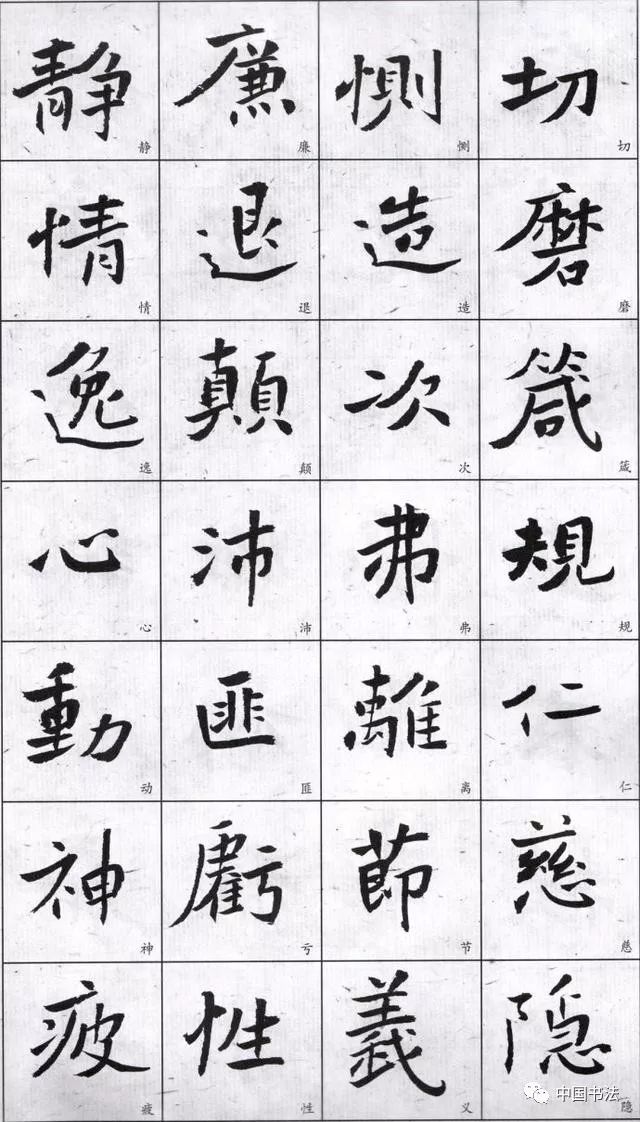 切磨箴規仁慈隐
切磨箴规仁慈隐
惻造次弗離節義
恻造次弗离节义
廉退顛沛匪虧性
廉退颠沛匪亏性
静情逸心動神疲
静情逸心动神疲
中国书法